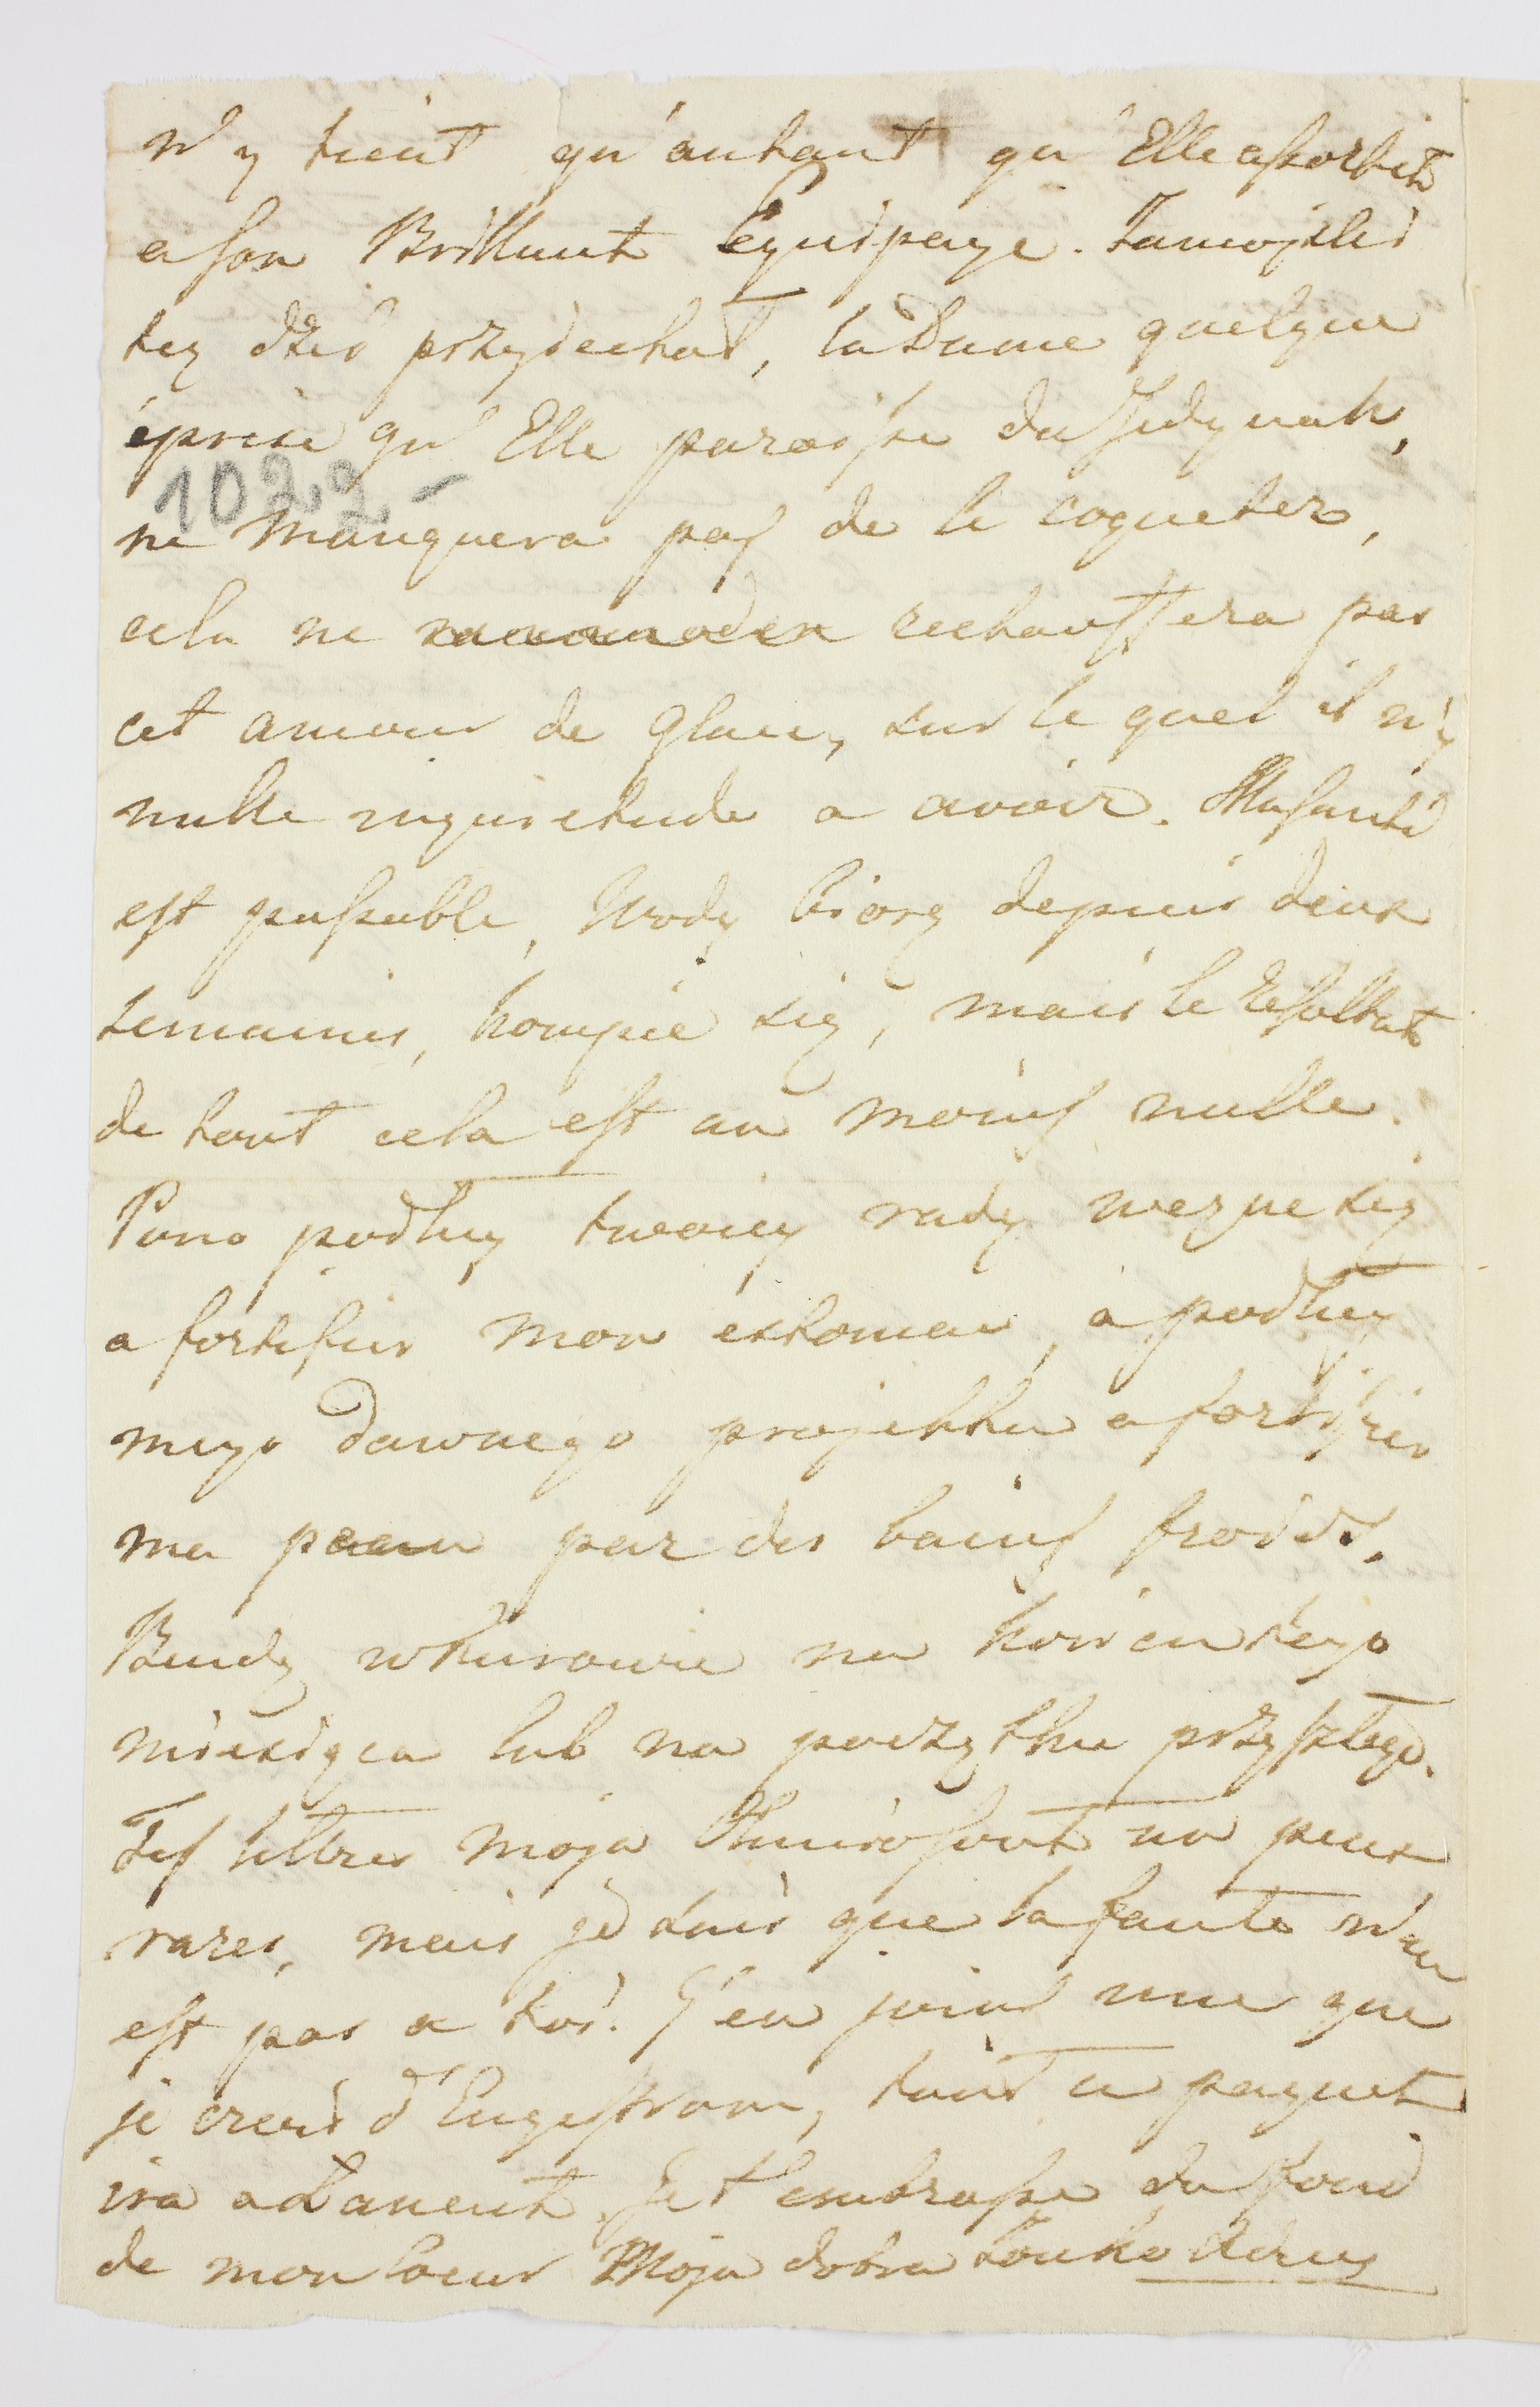 n'y tient qu'autant qu'Elle assortit
a son Brillant Equipage. Zamojski
tez dziś przyiechał, la Dame quelque
éprise qu'Elle paroisse du
1022 -
ne manquera pas de le coqueter,
cela ne rechauffera pas
cet amour de glace, sur le quel il n'y
nulle inquietude a avoir. Ma santé
est passable, Wody biorę depuis deux
semaines, kompię się, mais le resultat
de tout cela est au moins nulle.
Pono podług twoiey rady wezme się
a fortifier mon estomac, a podług
mego dawnego projektu a fortifier
ma peau par des bains froids.
Bendę w Warszawie na końcu tego
miesiąca lub na początku przyszłego.
Tes lettres moja sont un peux
rares, mais je sais que la faute n'en
est pas a toi. J'en joins une que
je crois d'Engestrom, tout ce paquet
ira a Łaneut. Je t'embrasse du fond
de mon coeur Moja dobra Żonko Adieu